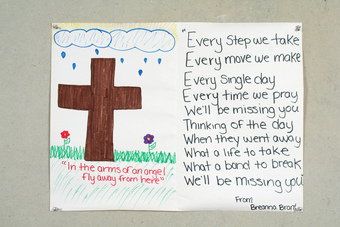 "In the arms of an angel
fly away from here"
"Every Step we take
Every move we make
Every Single day
Every time we pray
We'll be missing you
Thinking of the day
When they went away
What a life to take
What a band to break
We'll be missing you
From:
Breanna Brant